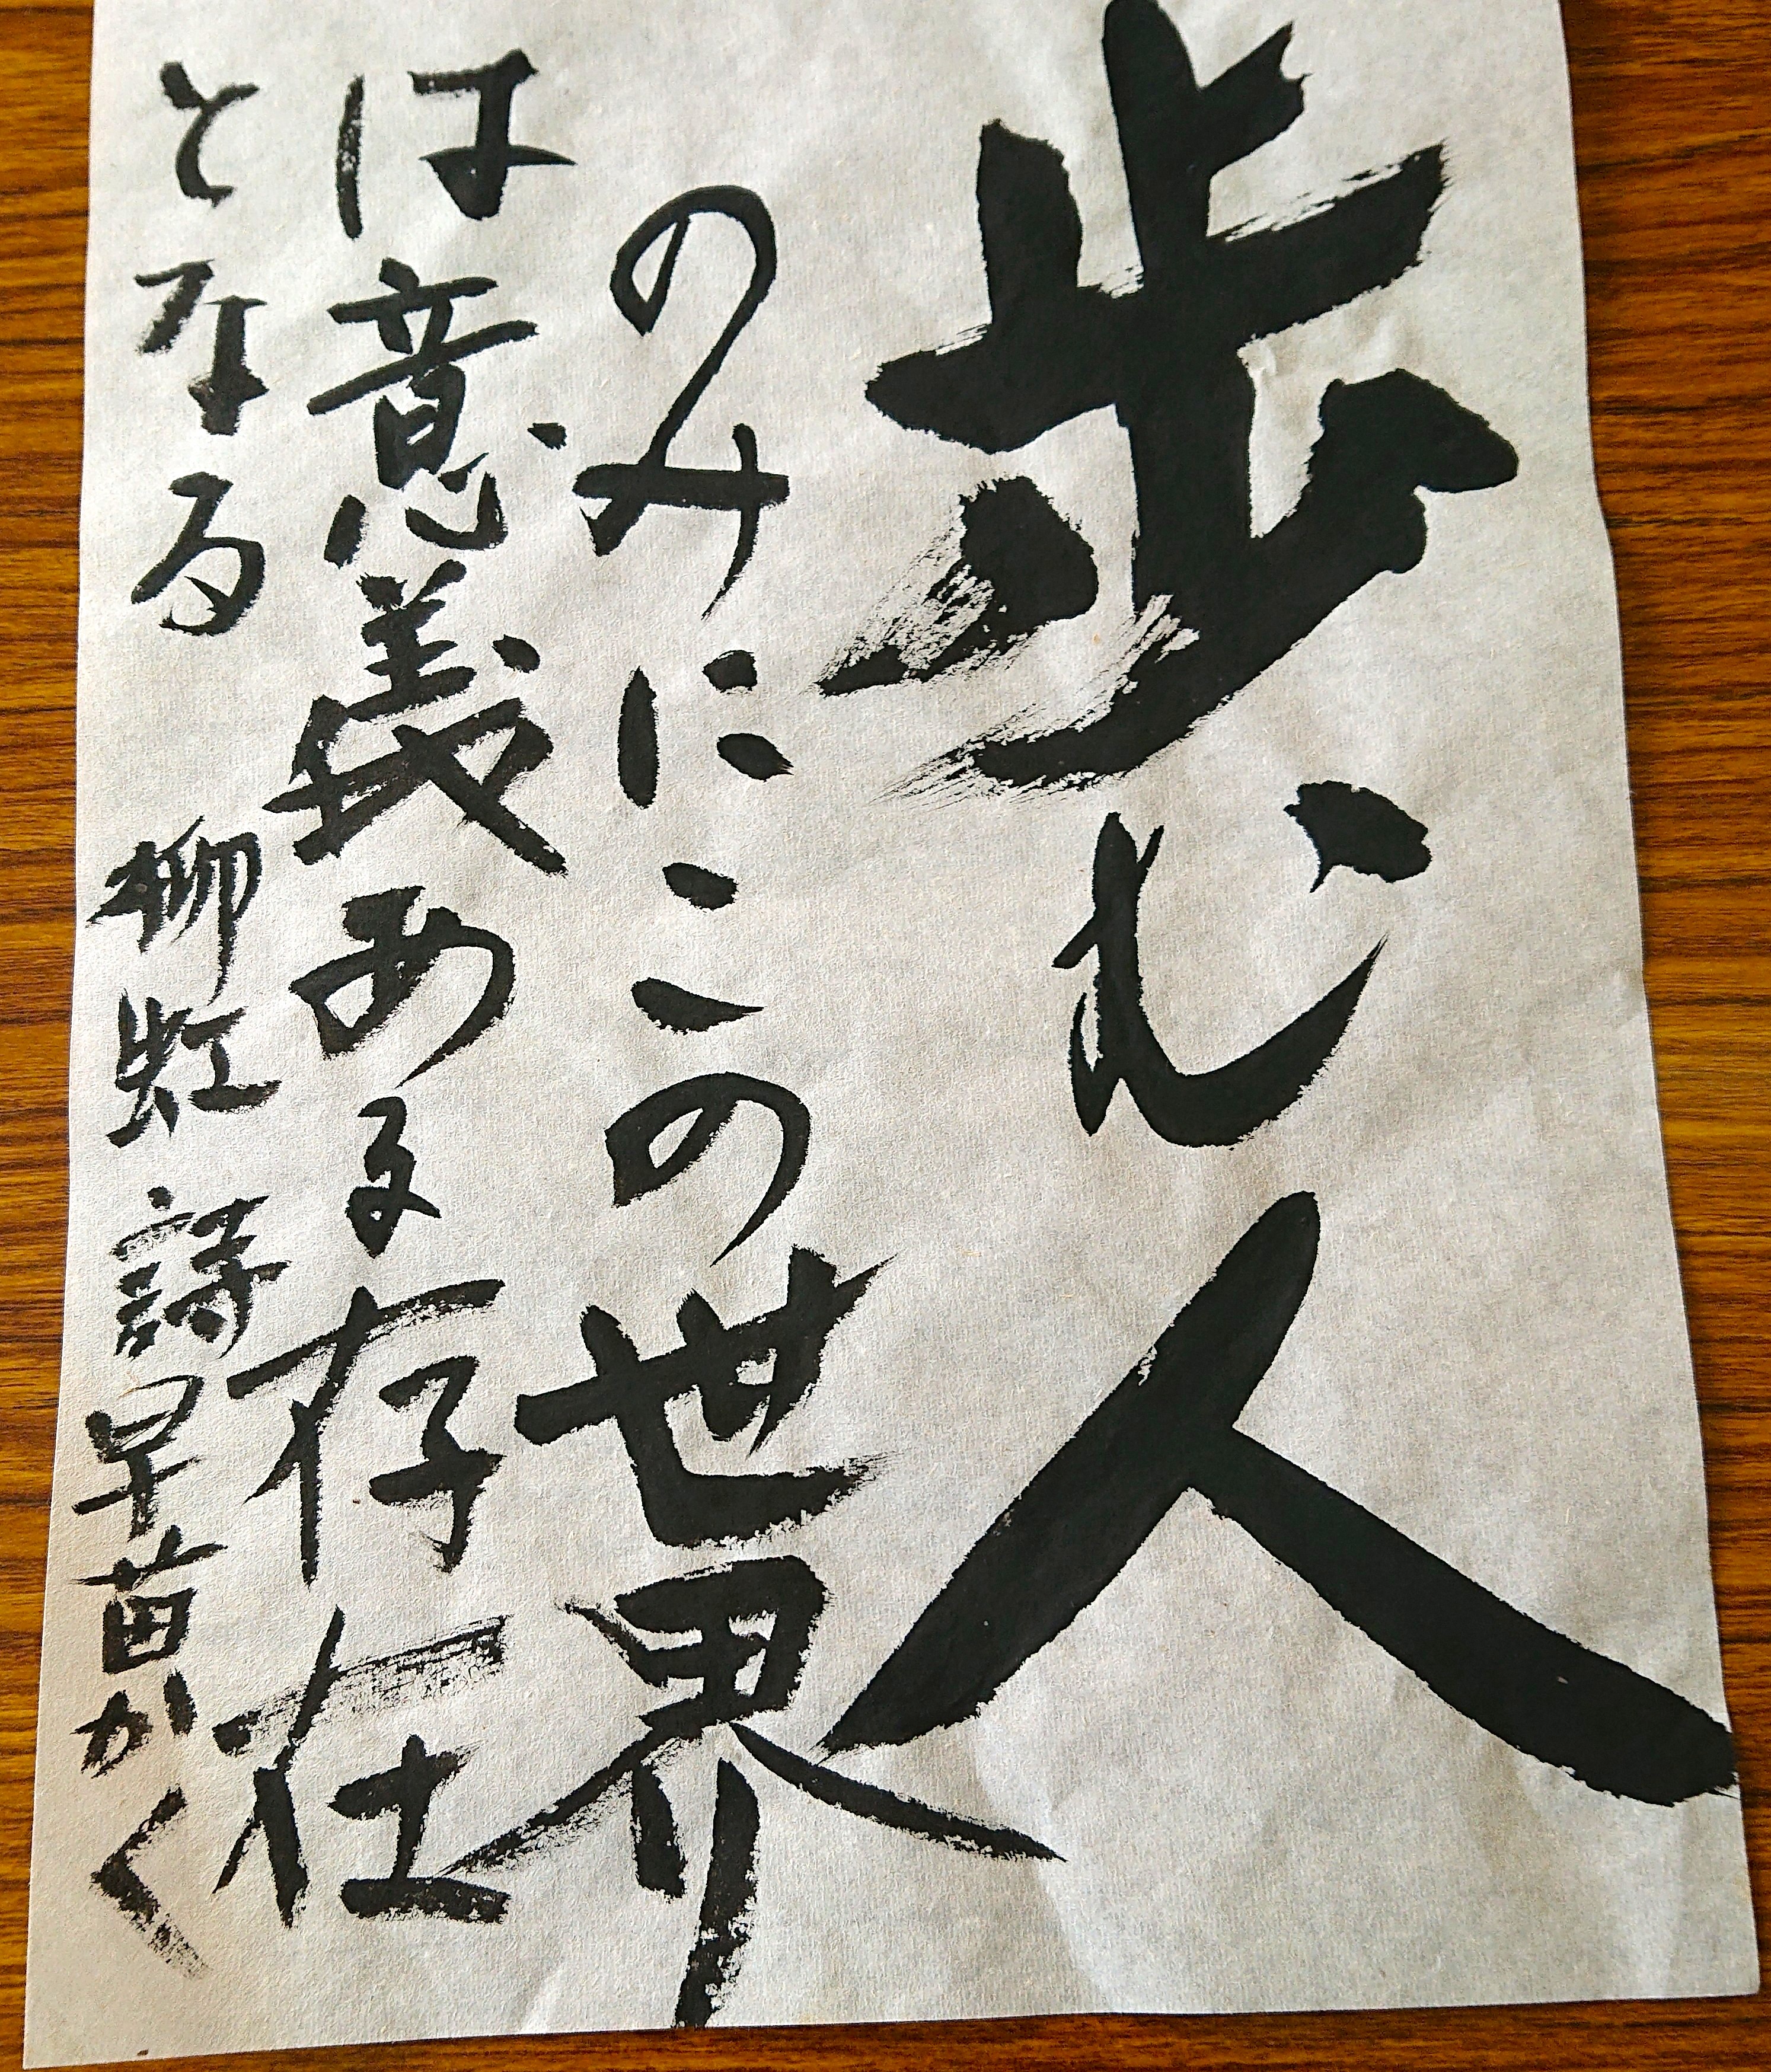 歩む人
のみにこの世界
は意義ある存在
となる 柳虹詩早苗かく